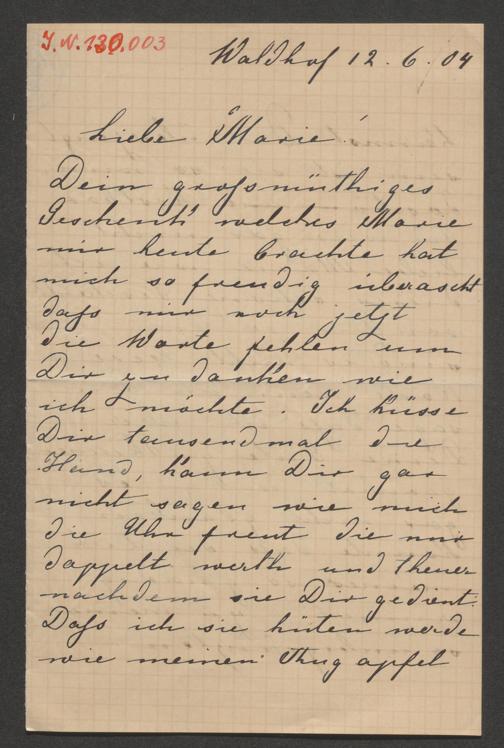 J.N. 130.003
Waldhof 12. 6. 04
Liebe Marie!
Dein grossmüthiges
Geschenk welches Marie
mir heute brachte hat
mich so freudig überascht
dass mir noch jetzt
die Worte fehlen um
Dir zu danken wie
ich möchte. Ich küsse
Dir tausendmal die
Hand, kann Dir gar
nicht sagen wie mich
die Uhr freut die mir
doppelt werth und theuer
nachdem sie Dir gedient.
Dass ich sie hüten werde
wie meinen Augapfel